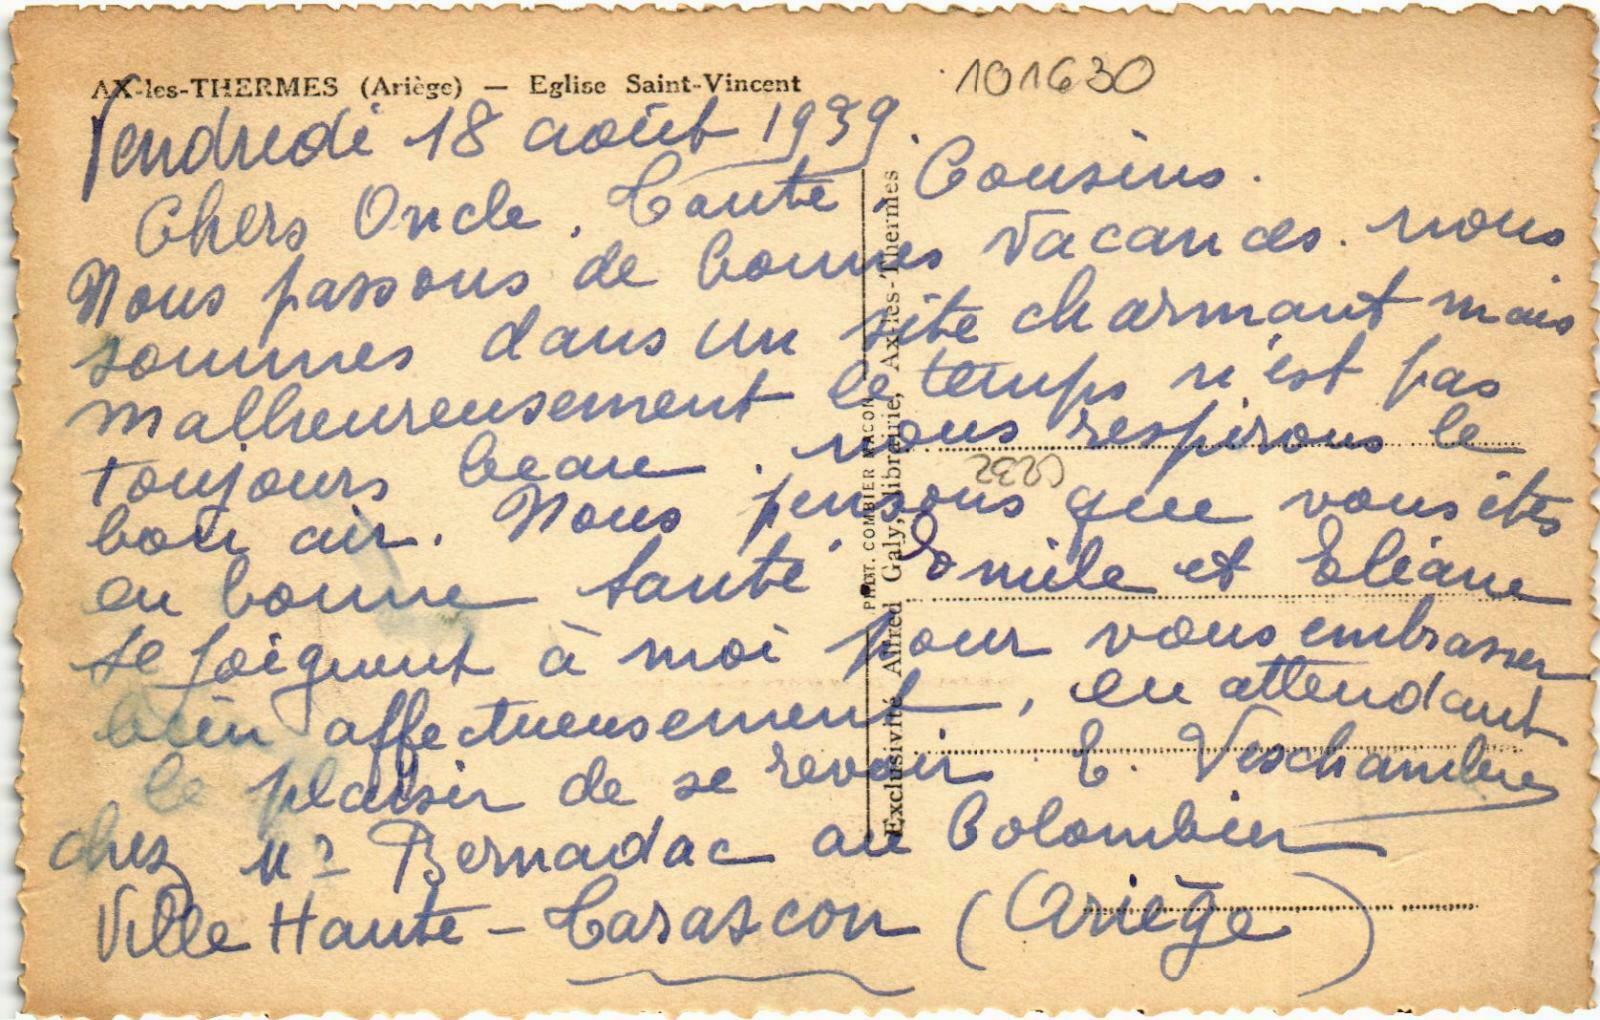 AX-les-THERMES (Ariège) — Eglise Saint-Vincent
101630
Vendredi 18 août 1939.
Chers Oncle, Tante, Cousins.
Nous passons de bonnes vacances. nous
sommes dans un site charmant mais
malheureusement le temps n'est pas
toujours beau. nous respirons le
bon air. Nous pensons que vous êtes
en bonne santé. Emile et Eliane
se joignent à moi pour vous embrasser
bien affectueusement, en attendant
le plaisir de se revoir. E. Veschambre
chez Mr Bernadac au Colombier
Ville Haute - Tarascon (Ariège)
PHOT. COMBIER MACON
Exclusivité Alfred Galy, librairie, Ax-les-Thermes